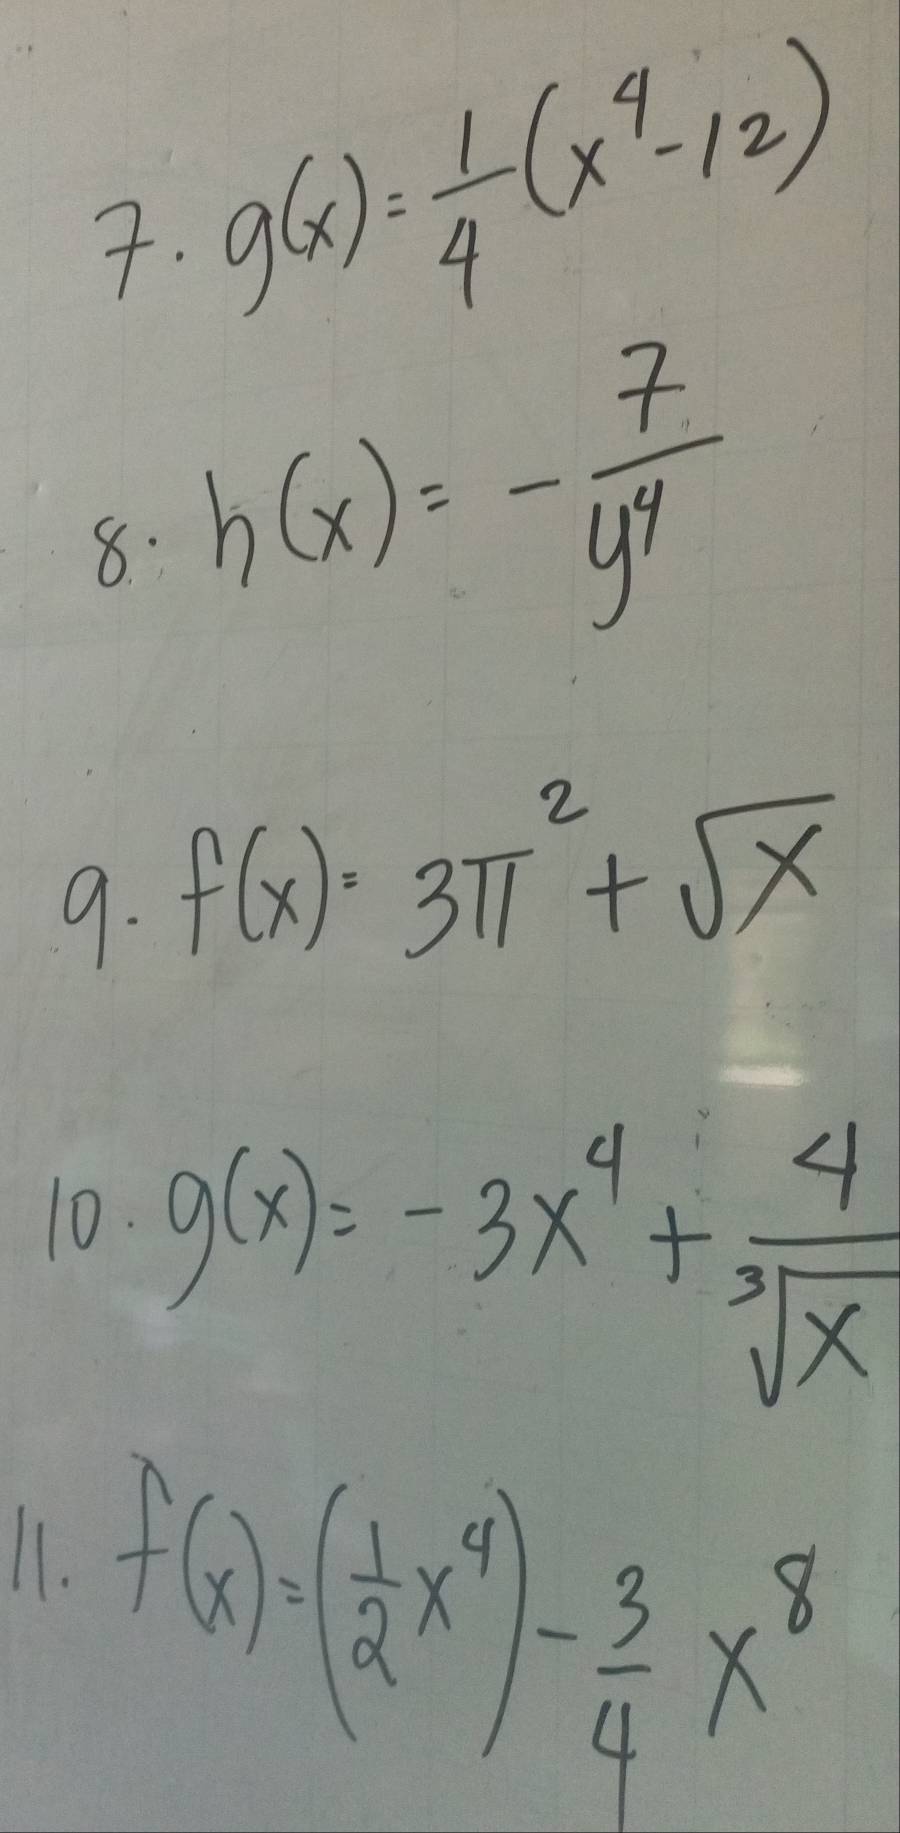 7. g(x) = 1/4 (x⁴ - 12)
8. h(x) = - 7/y⁴
9. f(x) = 3π² + √x
10. g(x) = - 3x⁴ + 4/∛x
11. f(x) = (1/2 x⁴) - 3/4 x⁸